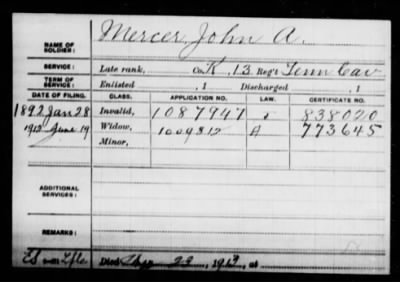 NAME OF SOLDIER: Mercer, John A.
SERVICE: Late rank, Co. K, 13 Reg't Tenn Cav
TERM OF SERVICE: Enlisted , 1 Discharged , 1
DATE OF FILING. CLASS. APPLICATION NO. LAW. CERTIFICATE NO.
1892 Jan 28 Invalid, 1087947 838020
1913 June 19 Widow, 1009812 A 773645
Minor,
ADDITIONAL SERVICES:
REMARKS:
Died 23, 1913, at